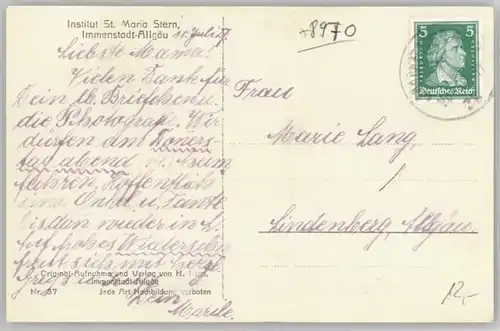 Institut St. Maria Stern,
Immenstadt-Allgäu
+8970
11. Juli 27.
Liebste Mama!
Vielen Dank für
Dein lb. Briefchen u.
die Photografie. Wir
dürfen am Doners-
tag abend heim
fahren. Hoffentlich
sind Onkel u. Tante
bis dan wieder in L.
Auf frohes Wiedersehen
freut sich mit
Dein
Marile.
Original-Aufnahme und Verlag von H.
Immenstadt-Allgäu
Nr. 37 Jede Art Nachbildung verboten
5 5
Deutsches Reich
Frau
Marie Lang,
/
Lindenberg, Allgäu.
12,-